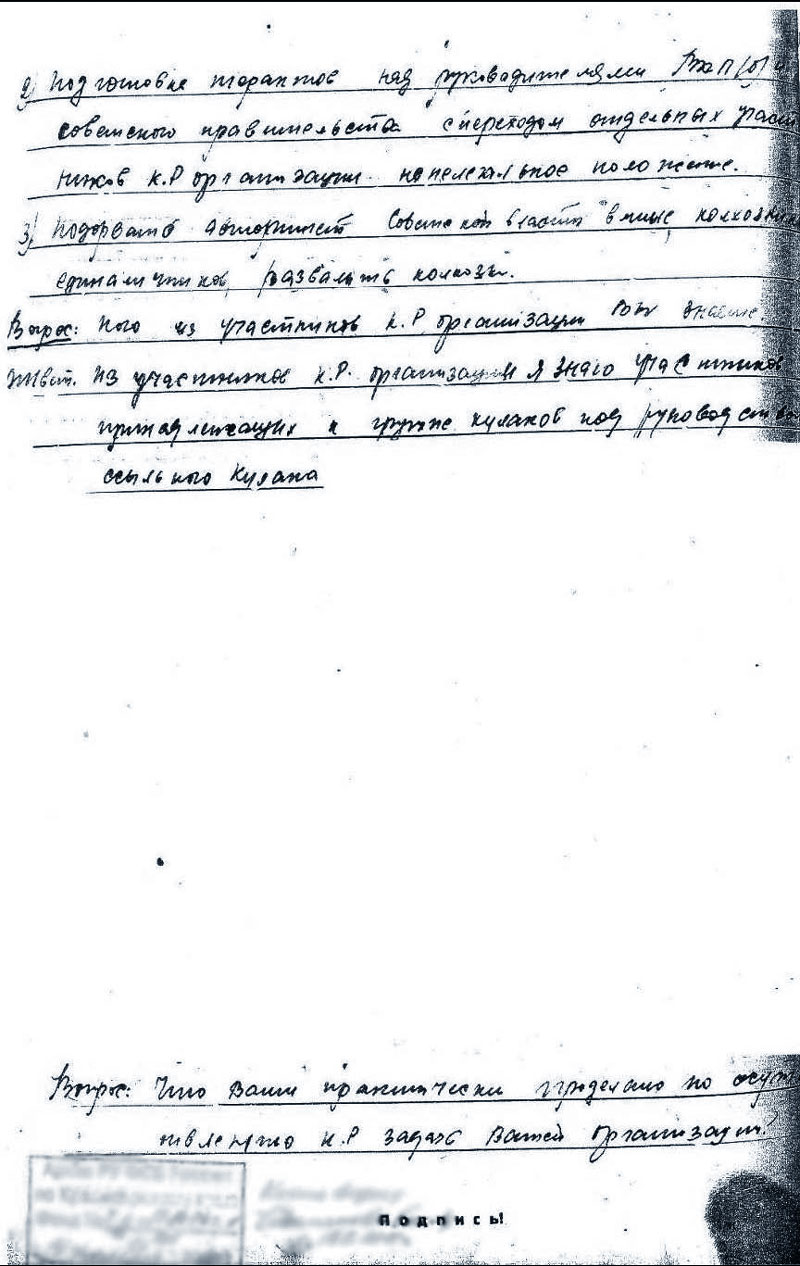 2) Подготовке терактов над руководителями ВКП(б) и
советского правительства с переходом отдельных участ
ников к.р организации на нелегальное положение.
3) Подорвать авторитет Советской власти в лице колхозник
единаличников, развалить колхозы.
Вопрос: Кого из участников к.р организации Вы знаете
Ответ. Из участников к.р. организации я знаю участников
принадлежащих к группе кулаков под руководством
ссыльного Кулака
Вопрос: Что Вами практически проделано по осущ
твлению к.р задач Вашей организации?
Подпись!